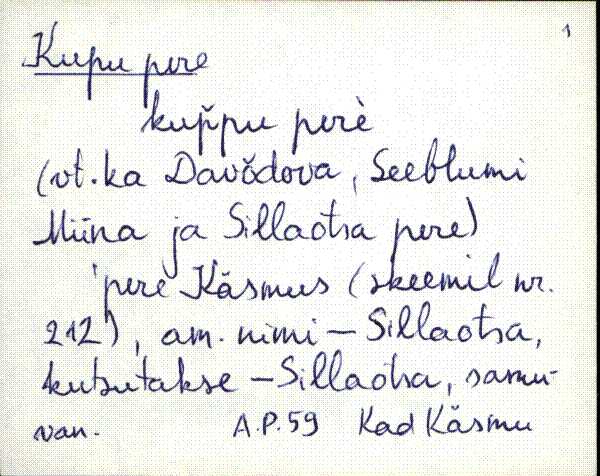 1
Kupu pere
kup̆pu perè
(vt. ka Davŏdova, Seeblumi
Miina ja Sillaotsa pere)
'pere Käsmus (skeemil nr.
212), am. nimi – Sillaotsa,
kutsutakse – Sillaotsa, samu-
van. A.P.59 Kad Käsmu